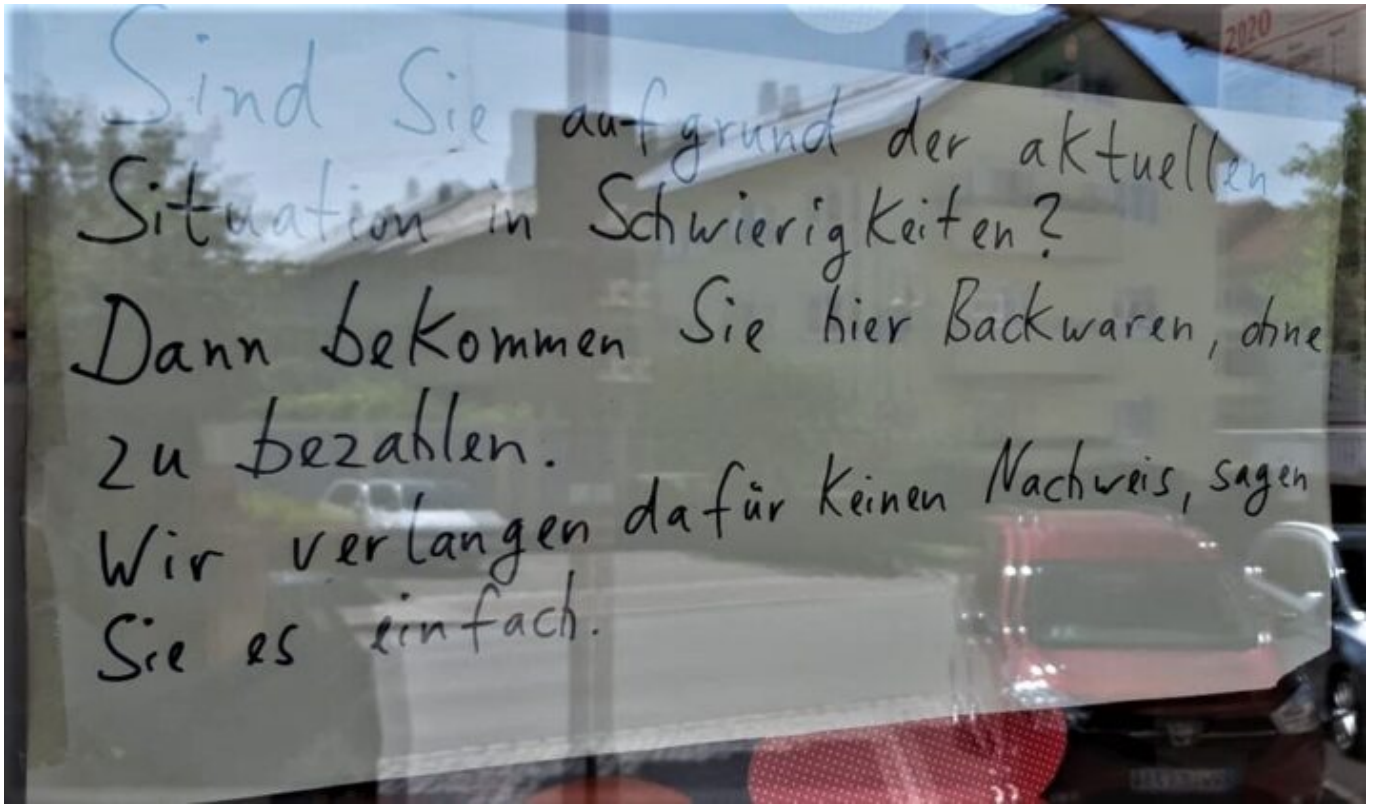 2020
Sind Sie aufgrund der aktuellen
Situation in Schwierigkeiten?
Dann bekommen Sie hier Backwaren, ohne
zu bezahlen.
Wir verlangen dafür keinen Nachweis, sagen
Sie es einfach.